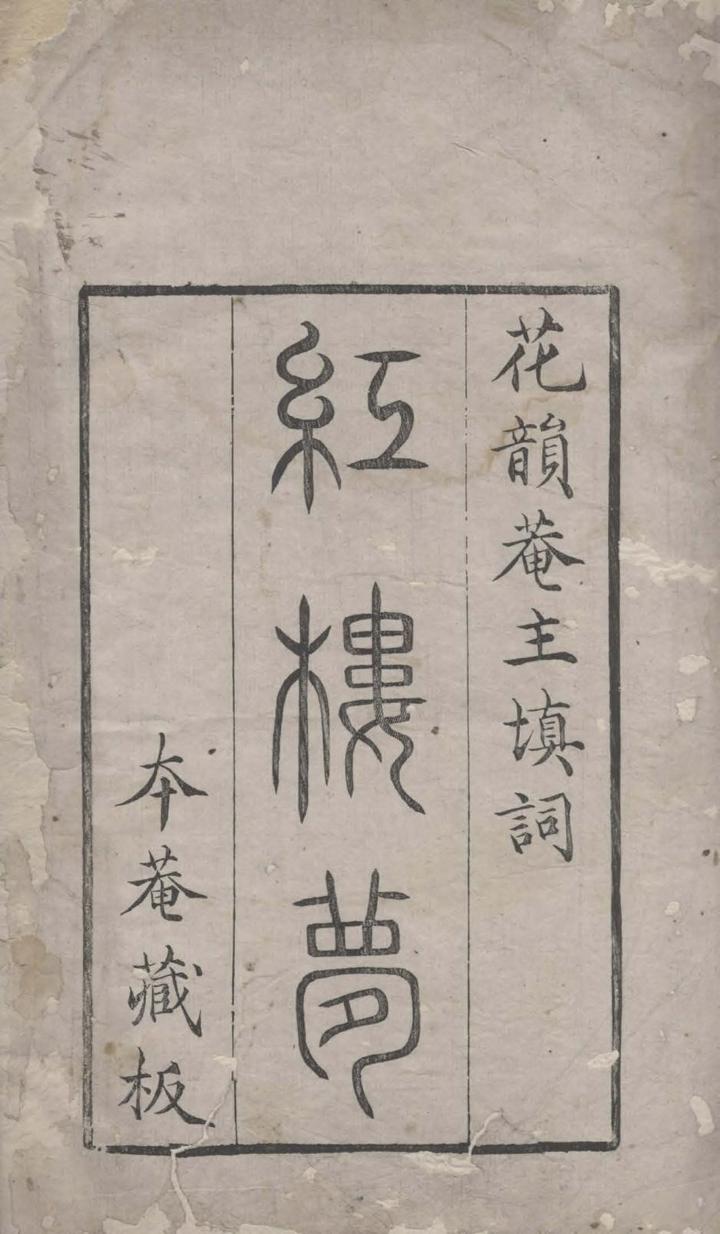 花韻菴主填詞
紅樓夢
本菴藏板